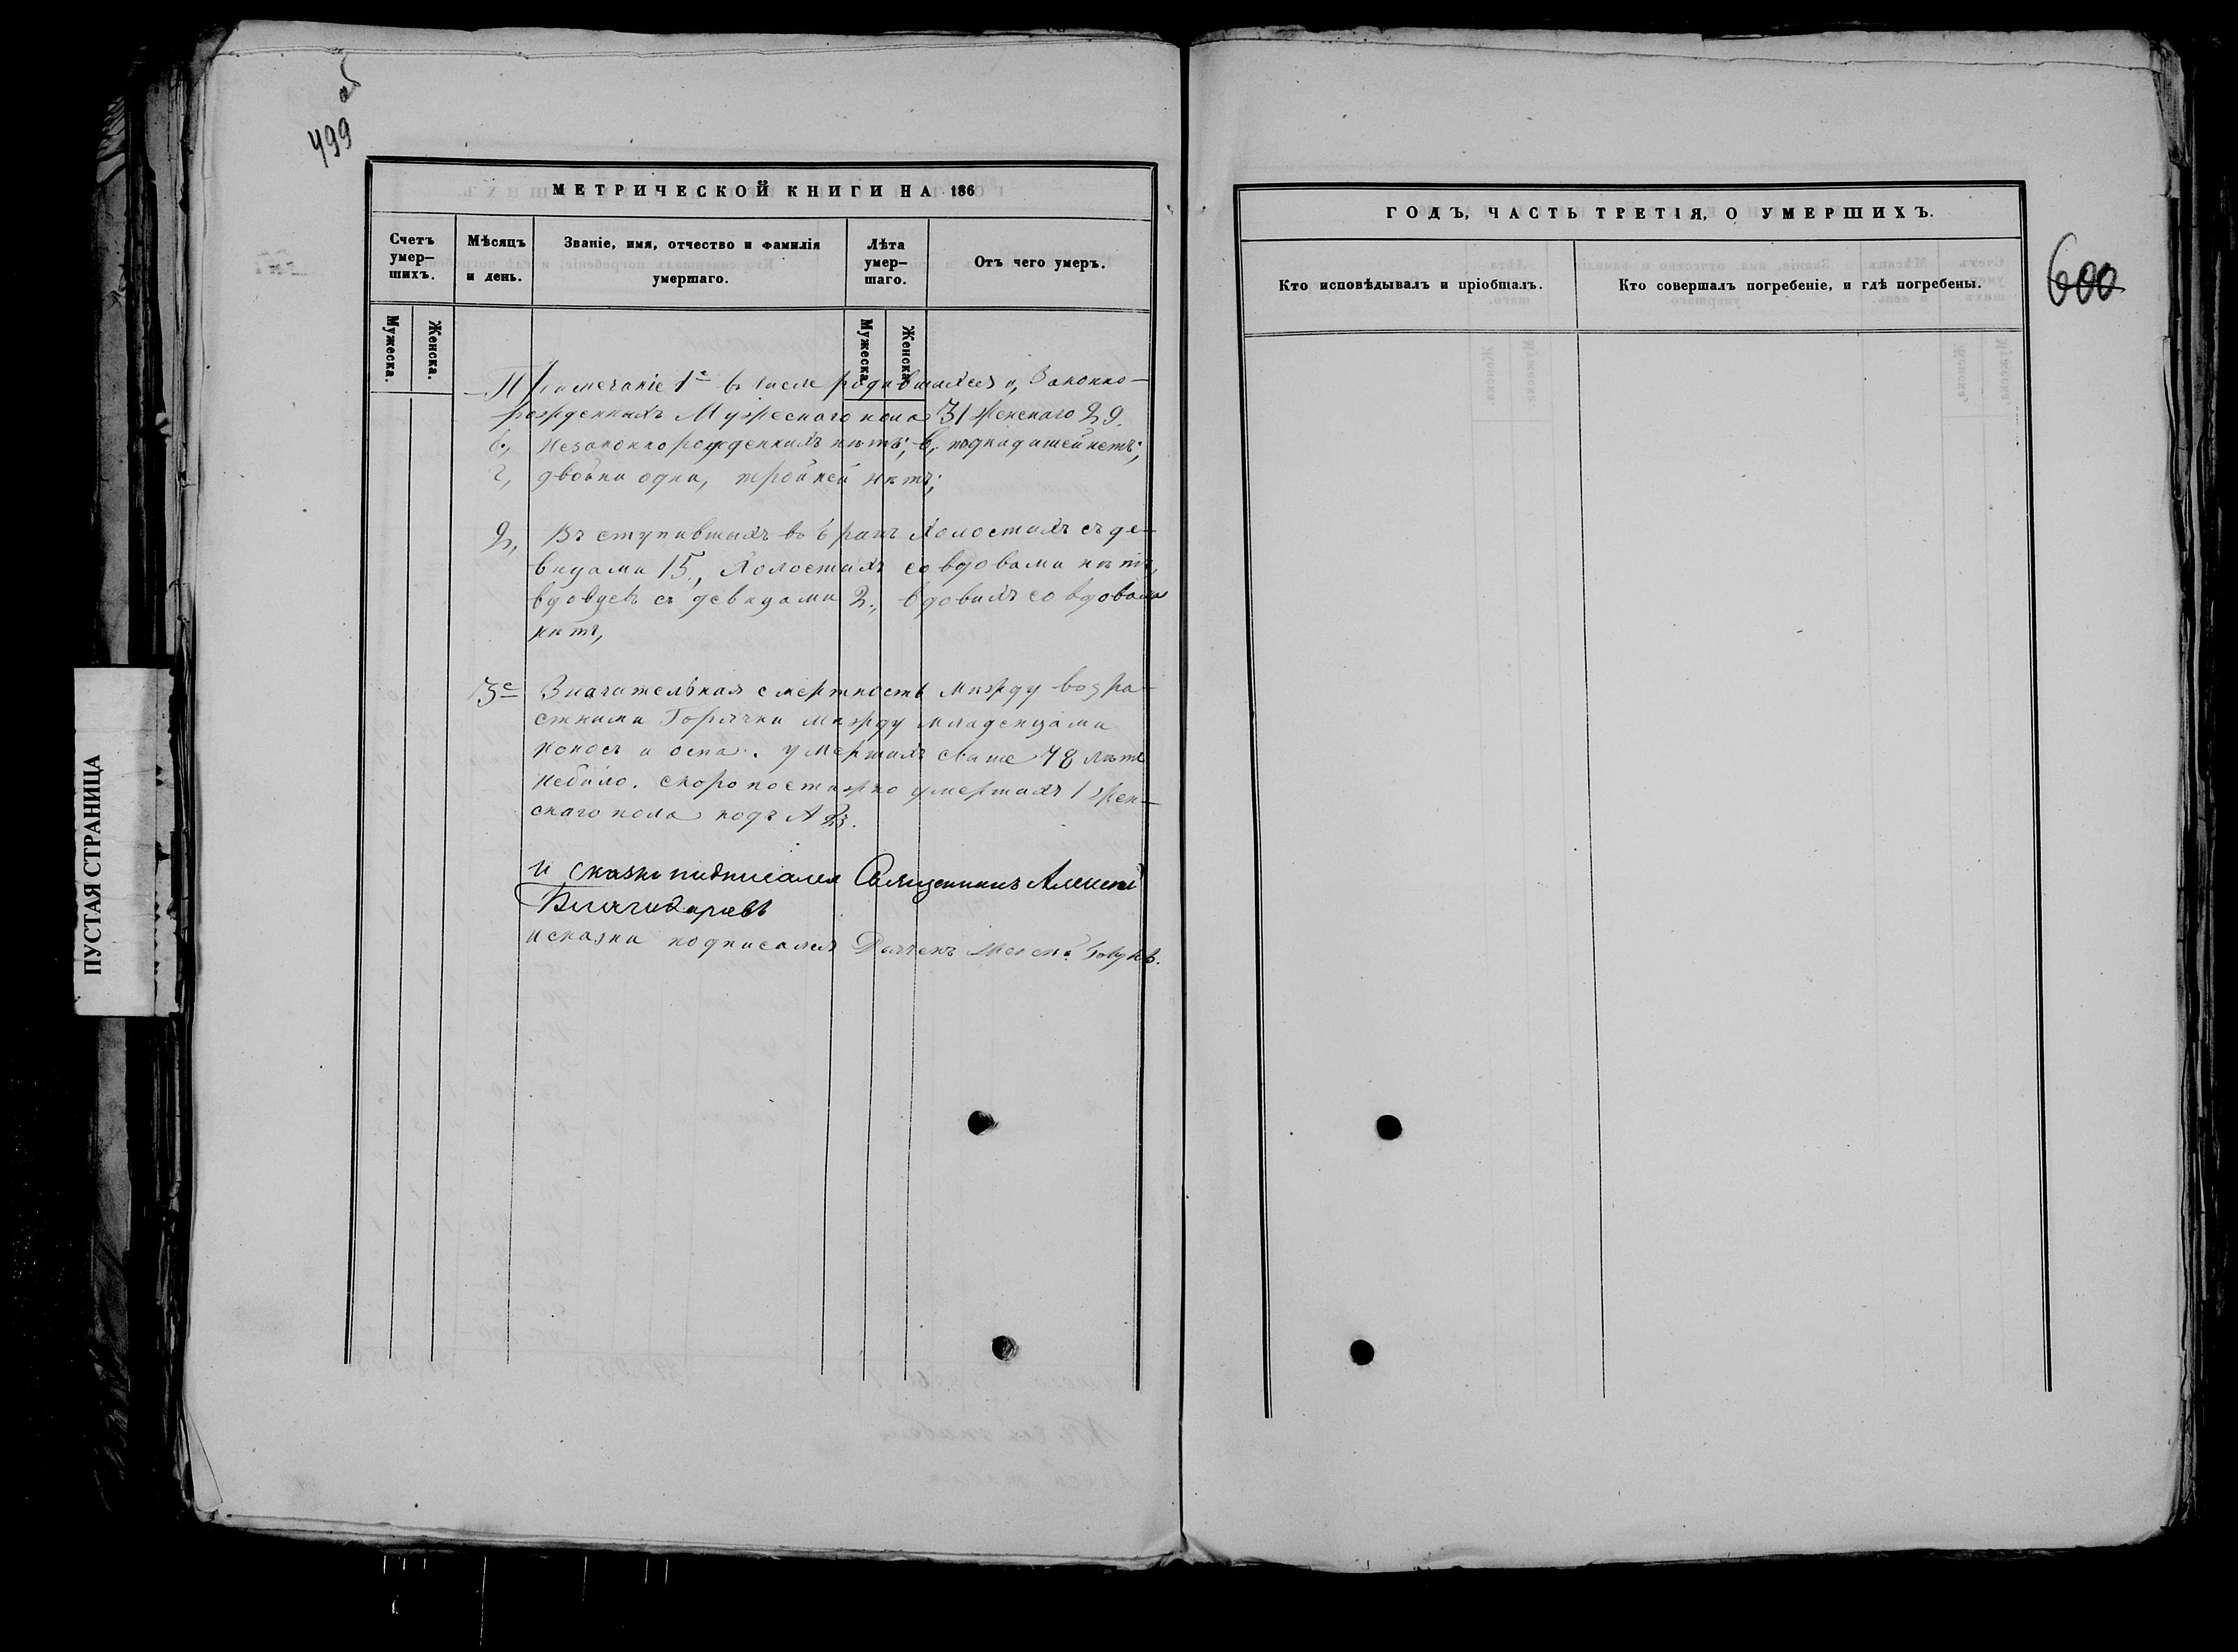 499 об
МЕТРИЧЕСКОЙ КНИГИ НА 186
Счетъ умер–шихъ.
Мѣсяцъ и день.
Званіе, имя, отчество и фамилія умершаго.
Лѣта умер–шаго.
Отъ чего умеръ.
Мужеска.
Женска.
Мужеска.
Женска.
Примечаніе 1е въ числе родившихся а, Законно–
рожденныхъ Мужескаго пола 31 женскаго 29.
б., Незаконнорожденныхъ нѣтъ; в, подкидышей нетъ;
г, двойни одни, тройней нѣтъ;
2, Вступившихъ въ бракъ Холостыхъ съ де–
вицами 15., Холостыхъ со вдовами нѣтъ,
вдовцевъ съ девицами 2., вдовыхъ со вдовами
нѣтъ,
3е Значительная смертность между возра–
стными Горячки между младенцами
поносъ и оспа. умершихъ свыше 78 лѣтъ
небыло. скоропостижно умершихъ 1 жен–
скаго пола подъ № 23.
и сказки подписался Священникъ Алексей
Благодаревъ
и сказки подписался Дьяченъ
ГОДЪ, ЧАСТЬ ТРЕТІЯ, О УМЕРШИХЪ.
Кто исповѣдывалъ и пріобщалъ.
Кто совершалъ погребеніе, и гдѣ погребены.
600
ПУСТАЯ СТРАНИЦА